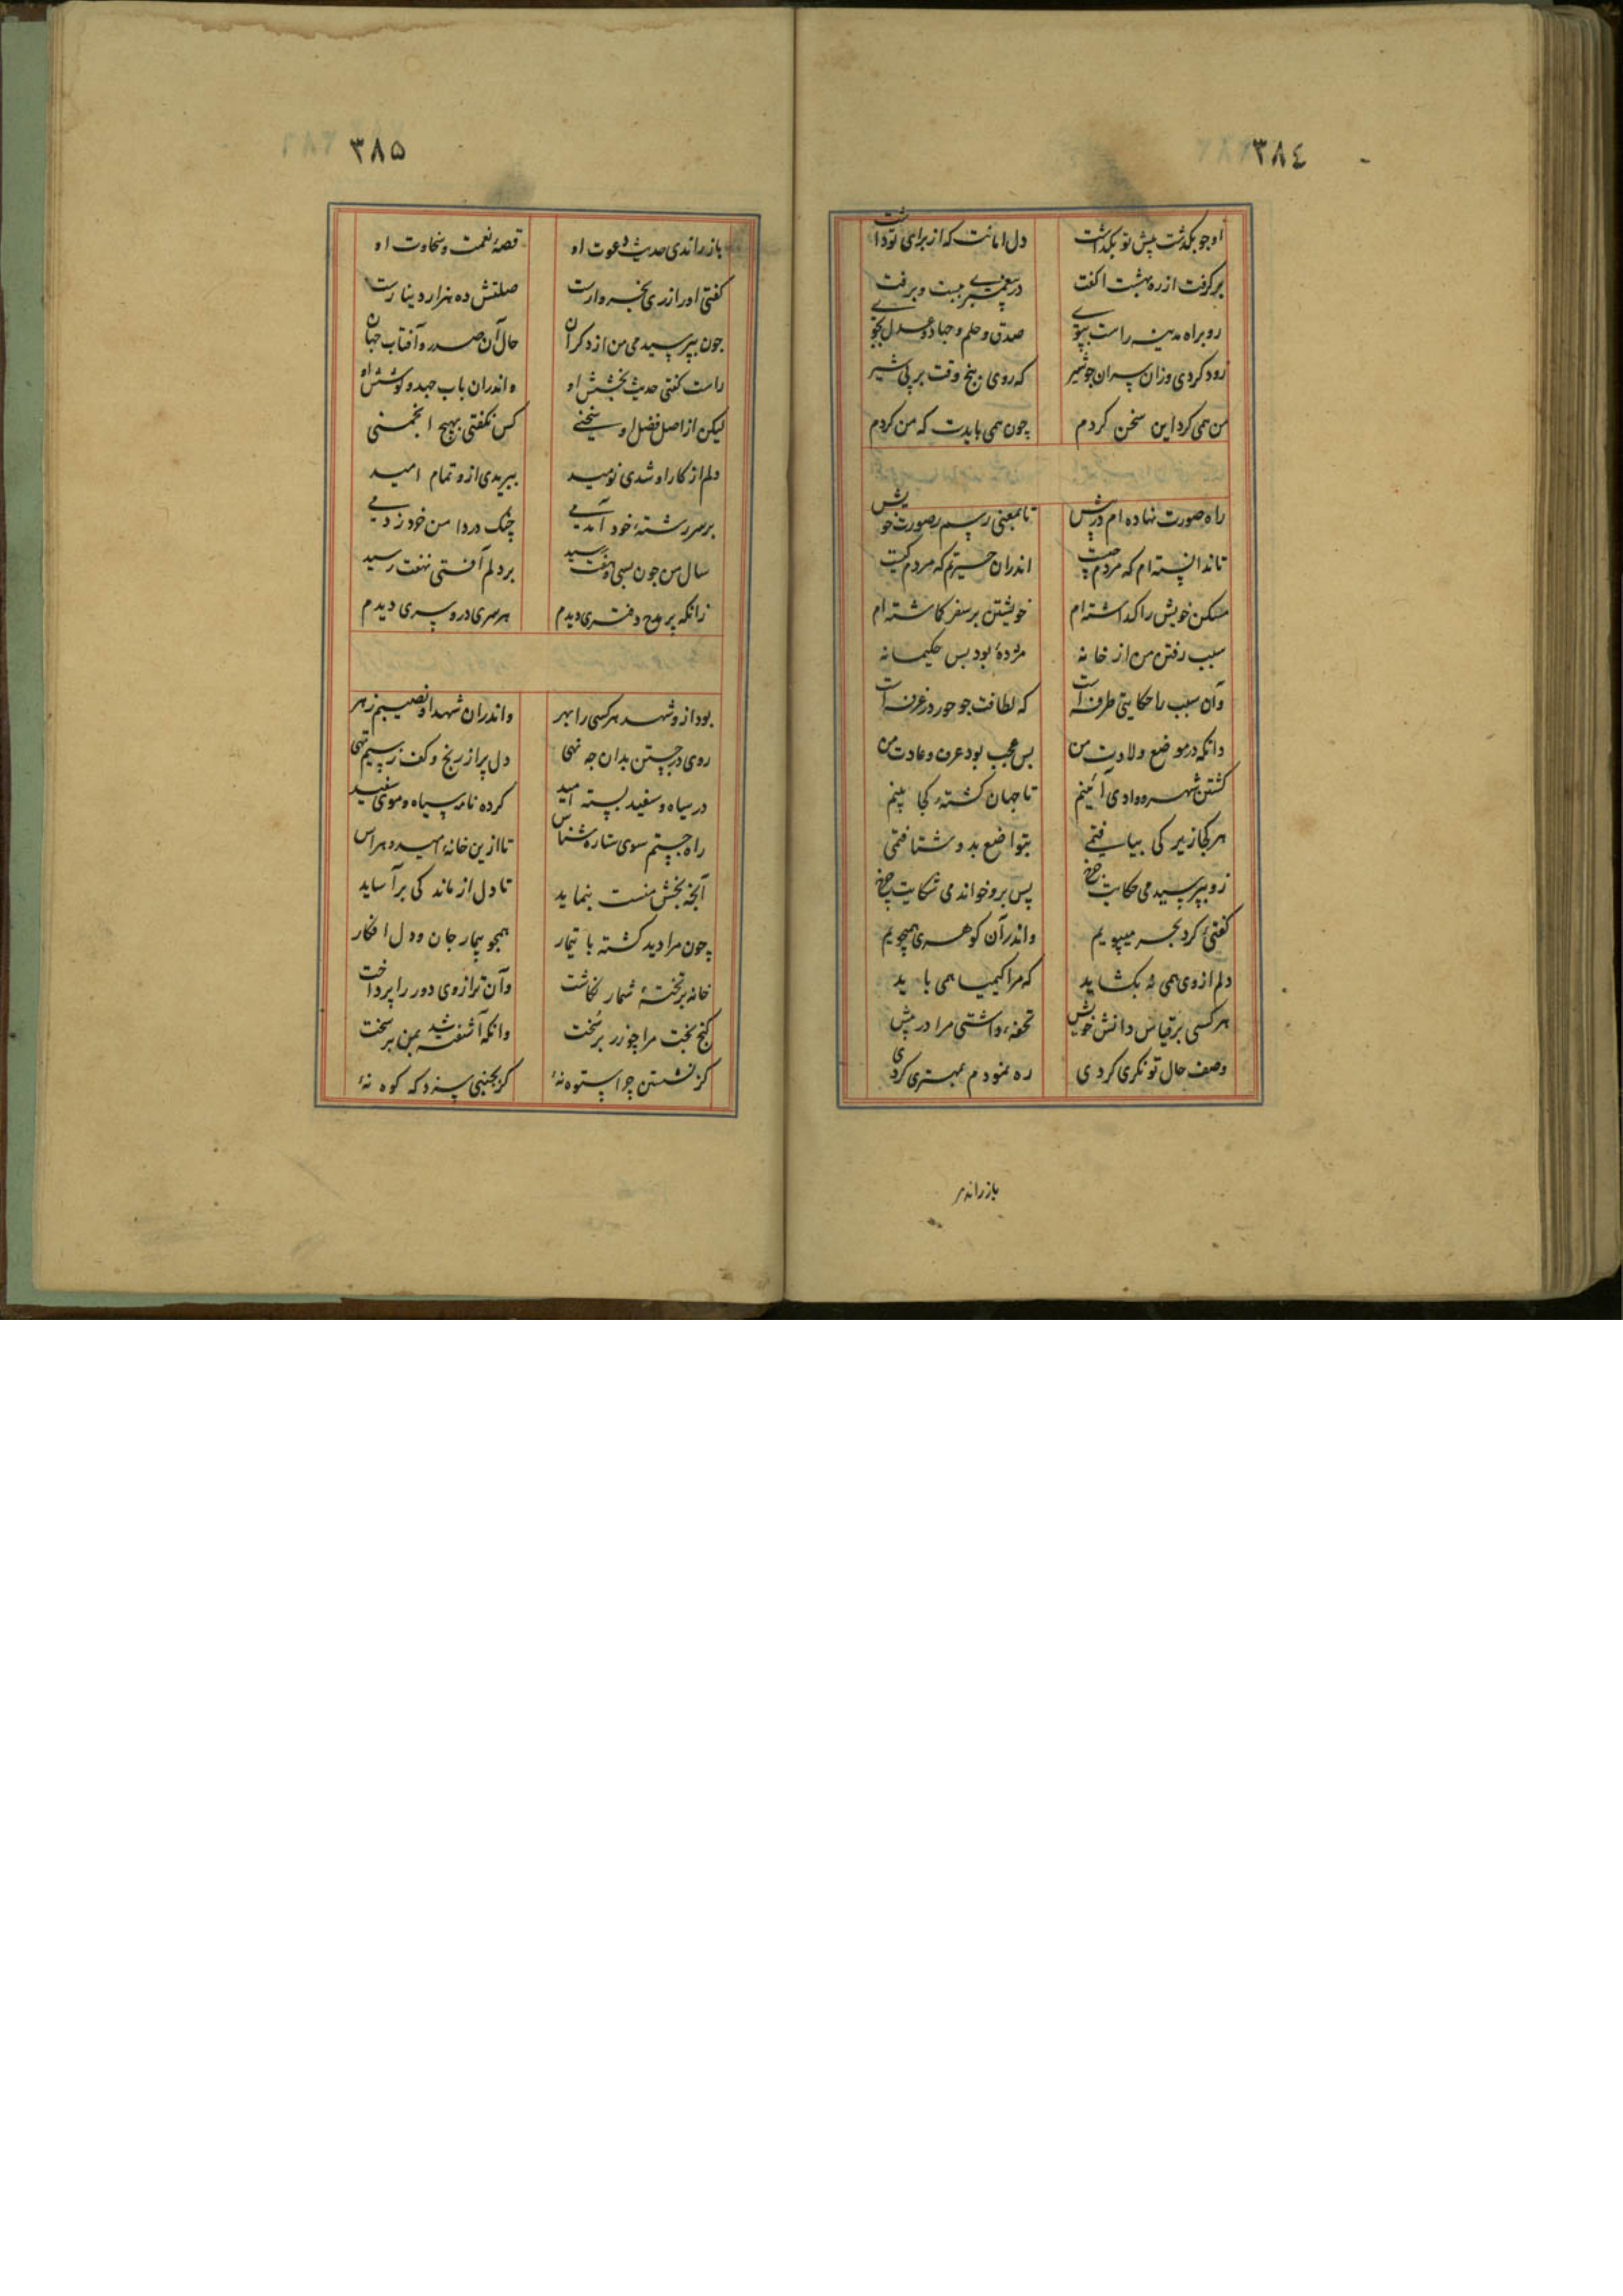 ٣٨٤
او چو بگذشت پیش تو بگذاشت دل امانت که از برای تو داشت
برگرفت از ره بهشت اکفت در پیغمبری ببست و برفت
رو براه مدینه راست بپوی صدق و حلم و حیا و عدل بجوی
زود کردی وزان پسران چو شیر که روی پنج وقت بر پی شیر
من همی کرد این سخن کردم چون همی بایدت که من کردم
راه صورت نهاده ام در پیش تا بمعنی رسم ز صورت خویش
تا ندانسته ام که مردم چیست اندران حیرتم که مردم کیست
مسکن خویش را گذاشته ام خویشتن بر سفر گماشته ام
سبب رفتن من از خانه مژدهٔ بود بس حکیمانه
وآن سبب را حکایتی طرفه است که لطافت چو حور در غرفه است
دانکه در موضع ولادت من بس عجب بود عرف و عادت من
گشتن شهر و وادی آئینم تا جهان گشتهٔ کجا بینم
هر کجا زیرکی بیافتمی بتواضع بدو شتافتمی
زو بپرسیدمی حکایت چرخ پس برو خواندمی شکایت چرخ
گفتی گرد بحر میپویم واندر آن گوهری همیجویم
دلم از وی همی نه بگشاید که مرا کیمیا همی باید
هر کسی بر قیاس دانش خویش تحفهٔ داشتی مرا در پیش
وصف حال توانگری کردی ره نمودم بمهتری کردی
باز راندی
٣٨٥
باز راندی حدیث دعوت او قصهٔ نعمت و سخاوت او
گفتی او را زری بخروارست صلتش ده هزار دینارست
چون بپرسیدمی من از دگران حال آن صدر و آفتاب جهان
راست گفتی حدیث بخشش او واندران باب جهد و کوشش او
لیکن از اصل فضل او سخنی کس نگفتی بهیچ انجمنی
دلم از کار او شدی نومید ببریدی ازو تمام امید
بر سر رشتهٔ خود آمدمی چنگ در دامن خود زدمی
سال من چون بسی و هفت رسید بر دلم آفتی نهفت رسید
زانکه پر مدح دفتری دیدم هر سری در و سری دیدم
بود ازو شهد هر کسی را بهر واندران شهد او نصیبم زهر
روی در جستن بدان چه نهی دل پر از رنج و کف ز سیم تهی
در سیاه و سفید بسته امید کرده نامه سیاه و موی سفید
راه جستم سوی ستاره شناس تا ازین خانهٔ امید و هراس
آنچه بخش منست بنماید تا دل از ماندگی برآساید
چون مرا دید گشته با تیمار همچو بیمار جان و دل افکار
خانه بر تختهٔ شمار نگاشت وآن ترازوی دور را پرداخت
گنج بخت مرا چو زر برسخت وانگه آشفته شد بمن بر سخت
کز نشستن چرا ستوه نهٔ گر بجنبی سزد که کوه نهٔ